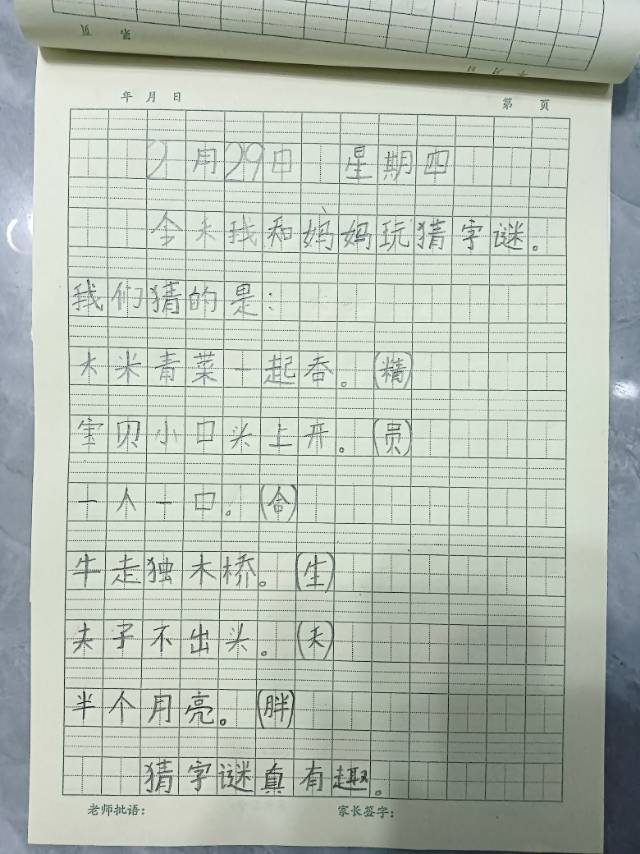 年 月 日 第 页
2月29日 星期四
今天我和妈妈玩猜字谜。
我们猜的是:
大米青菜一起吞。(精)
宝贝小口头上开。(员)
一人一口。(合)
牛走独木桥。(生)
夫子不出头。(天)
半个月亮。(胖)
猜字谜真有趣。
老师批语: 家长签字: